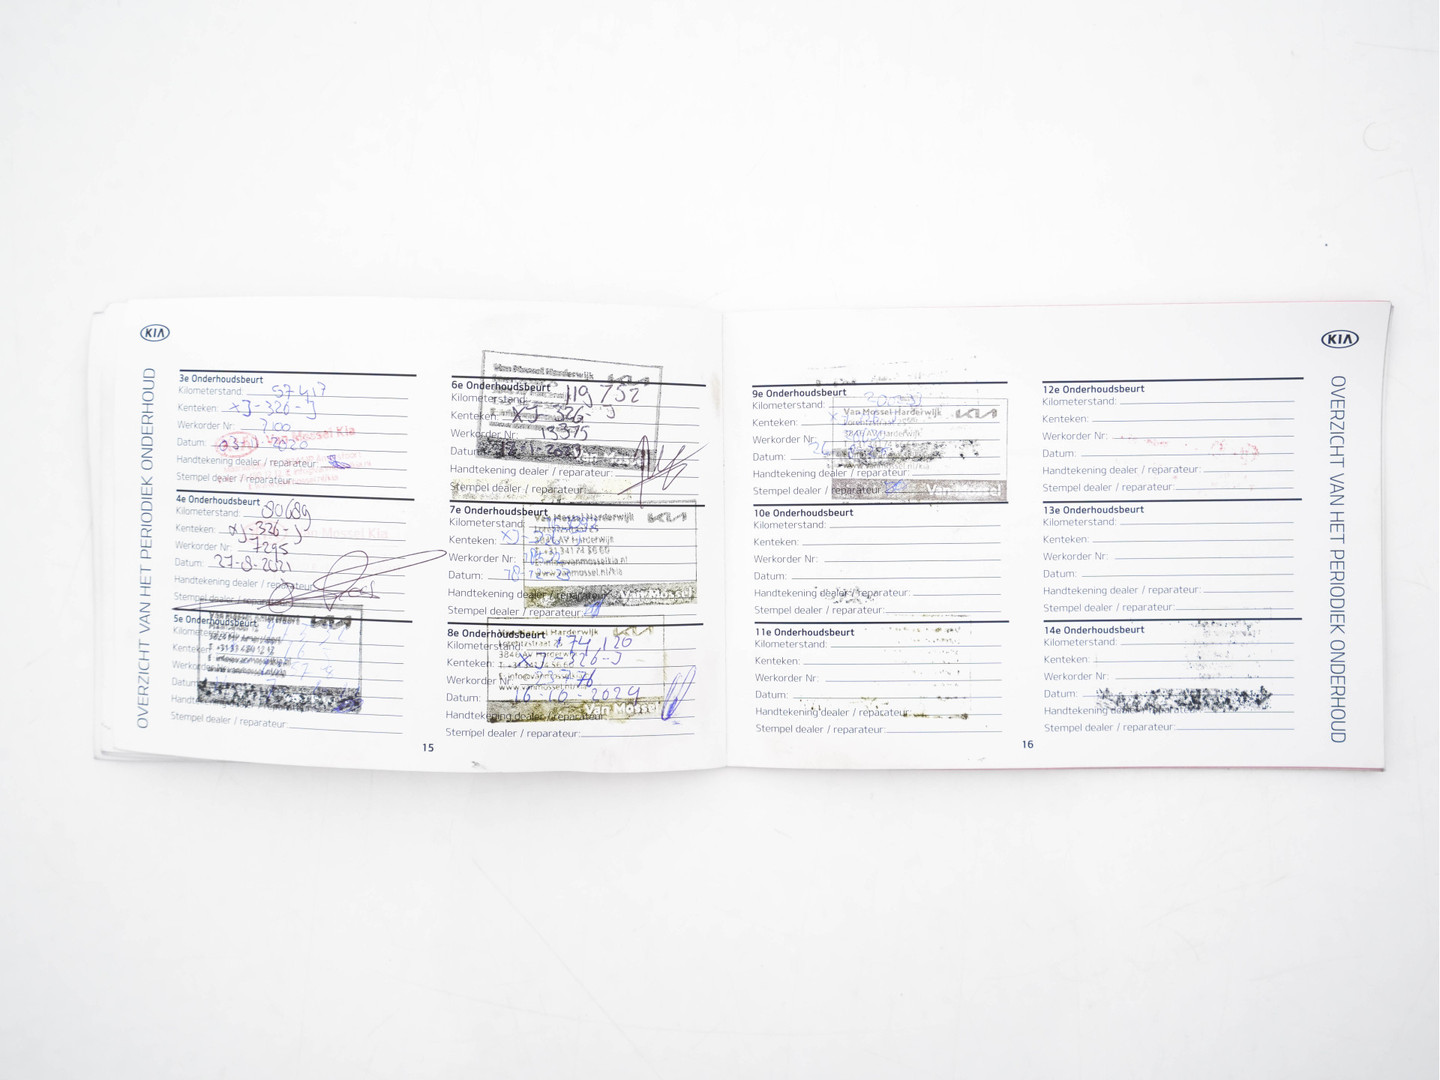 KIA
OVERZICHT VAN HET PERIODIEK ONDERHOUD
3e Onderhoudsbeurt
Kilometerstand: 57417
Kenteken: XJ-326-J
Werkorder Nr: 7100
Datum: 2020
Mossel Kia
Handtekening dealer / reparateur:
Stempel dealer / reparateur:
4e Onderhoudsbeurt
Kilometerstand: 80689
Kenteken: XJ-326-J
Mossel Kia
Werkorder Nr: 7295
Datum: 27-8-2021
Handtekening dealer / reparateur:
Stempel dealer / reparateur:
5e Onderhoudsbeurt
Kilomete
Kenteke
Werko
Datum
Handt
Stempel dealer / reparateur:
6e Onderhoudsbeurt
Van Mossel Harderwijk
KIA
Kilometerstand: 119752
Kenteken: XJ-326-J
Werkorder Nr: 13375
Datum:
Handtekening dealer / reparateur:
Stempel dealer / reparateur:
7e Onderhoudsbeurt
Van Mossel Harderwijk
KIA
Kilometerstand:
Kenteken: XJ-
3846 AV Harderwijk
Werkorder Nr:
Datum: 18-12-23
Handtekening dealer / reparateur:
Van Mossel
Stempel dealer / reparateur:
8e Onderhoudsbeurt
Harderwijk
KIA
Kilometerstand: 174,120
Kenteken: XJ-326-J
3846 AV Harderwijk
Werkorder Nr: 23776
Datum: 16-10-2024
Handtekening dealer / reparateur:
Van Mossel
Stempel dealer / reparateur:
15
KIA
OVERZICHT VAN HET PERIODIEK ONDERHOUD
9e Onderhoudsbeurt
Kilometerstand:
Van Mossel Harderwijk
KIA
Kenteken:
3846 AV Harderwijk
Werkorder Nr:
Datum:
Handtekening dealer / reparateur:
Stempel dealer / reparateur:
Van Mossel
10e Onderhoudsbeurt
Kilometerstand:
Kenteken:
Werkorder Nr:
Datum:
Handtekening dealer / reparateur:
Stempel dealer / reparateur:
11e Onderhoudsbeurt
Kilometerstand:
Kenteken:
Werkorder Nr:
Datum:
Handtekening dealer / reparateur:
Stempel dealer / reparateur:
12e Onderhoudsbeurt
Kilometerstand:
Kenteken:
Werkorder Nr:
Datum:
Handtekening dealer / reparateur:
Stempel dealer / reparateur:
13e Onderhoudsbeurt
Kilometerstand:
Kenteken:
Werkorder Nr:
Datum:
Handtekening dealer / reparateur:
Stempel dealer / reparateur:
14e Onderhoudsbeurt
Kilometerstand:
Kenteken:
Werkorder Nr:
Datum:
Handtekening dealer / reparateur:
Stempel dealer / reparateur:
16